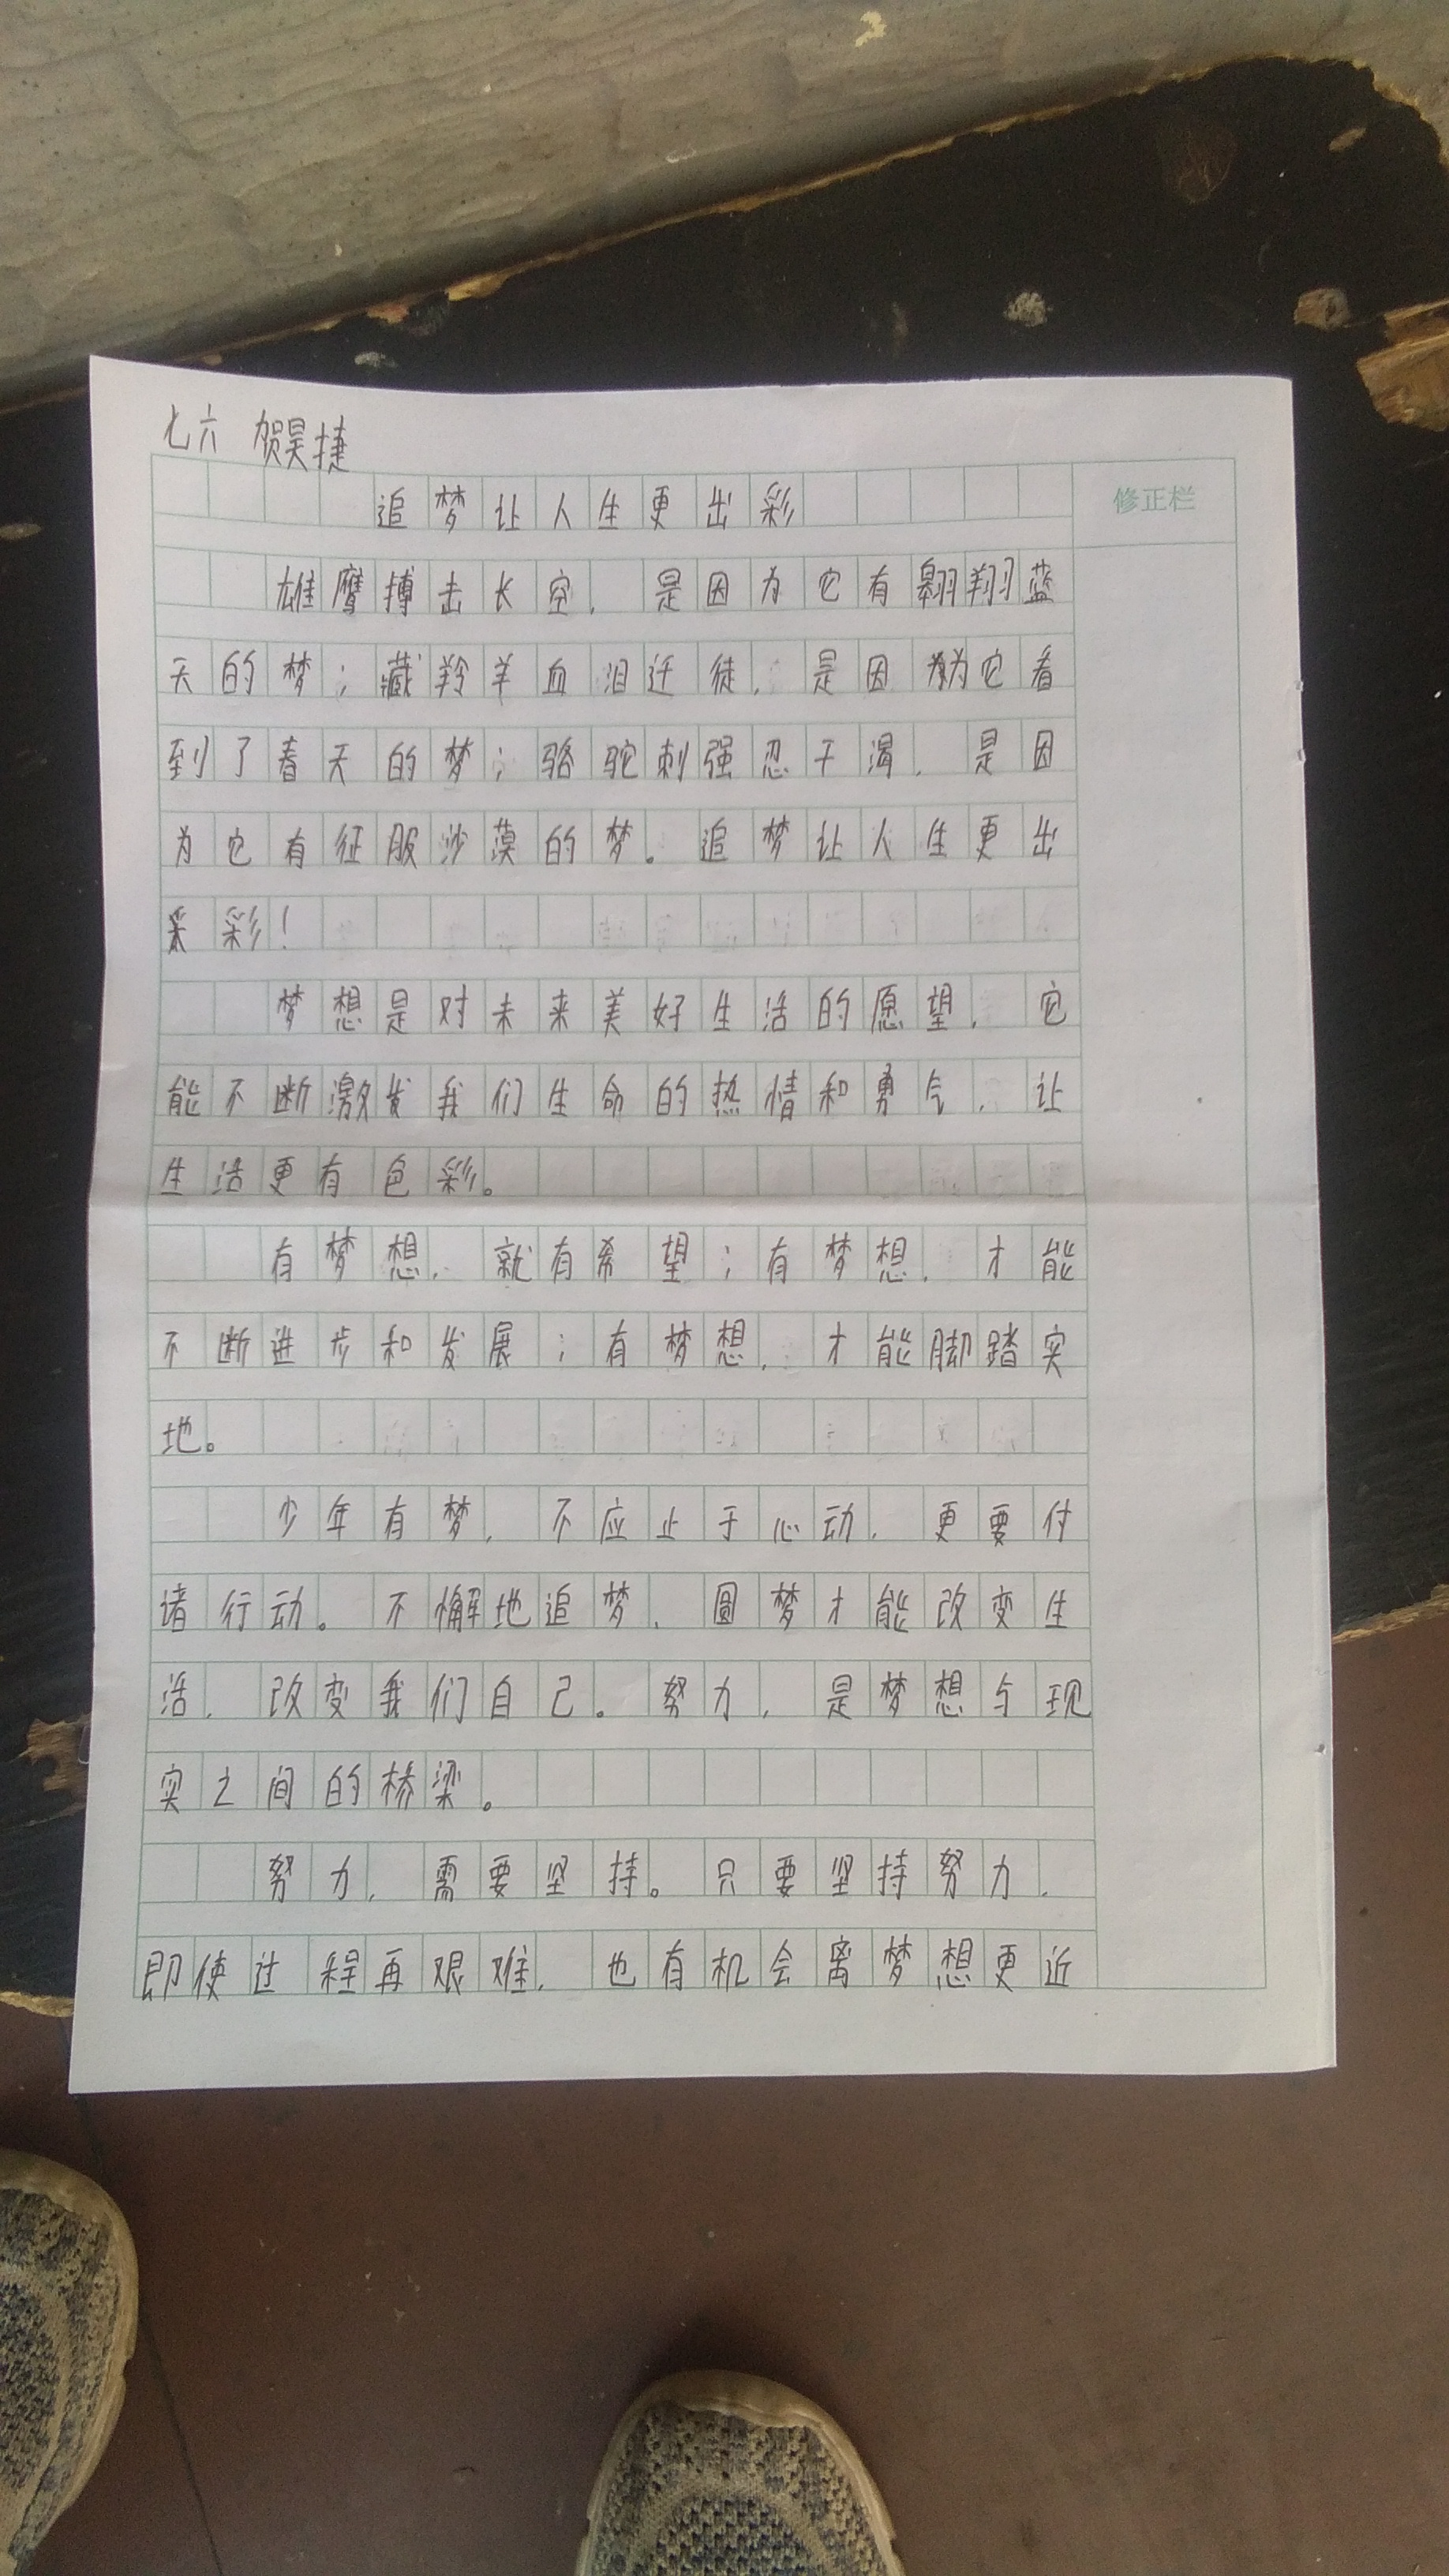 七六 贺昊捷
追梦让人生更出彩
修正栏
雄鹰搏击长空，是因为它有翱翔蓝
天的梦；藏羚羊血泪迁徒，是因为它看
到了春天的梦；骆驼刺强忍干渴，是因
为它有征服沙漠的梦。追梦让人生更出
彩！
梦想是对未来美好生活的愿望，它
能不断激发我们生命的热情和勇气，让
生活更有色彩。
有梦想，就有希望；有梦想，才能
不断进步和发展；有梦想，才能脚踏实
地。
少年有梦，不应止于心动，更要付
诸行动。不懈地追梦、圆梦才能改变生
活，改变我们自己。努力，是梦想与现
实之间的桥梁。
努力，需要坚持。只要坚持努力，
即使过程再艰难，也有机会离梦想更近